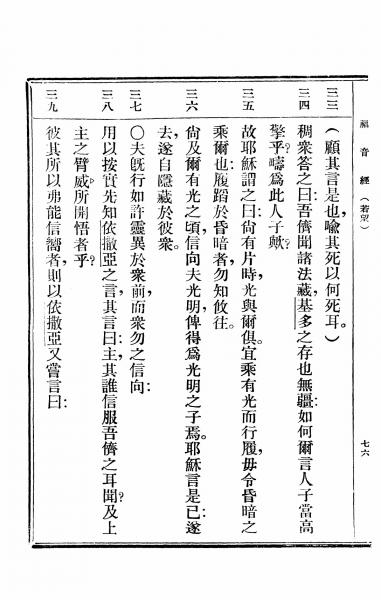 福音經（若望）
七六
三三
（顧其言是也，喻其死以何死耳。）
三四
稠衆答之曰：吾儕聞諸法藏，基多之存也無疆：如何爾言人子當高
擎乎？疇爲此人子歟？
三五
故耶穌謂之曰：尙有片時，光與爾俱。宜乘有光而行履，毋令昏暗之
乘爾也：履蹈於昏暗者，勿知攸往。
三六
尙及爾有光之頃，信向夫光明，俾得爲光明之子焉。耶穌言是已：遂
去，遂自隱藏於彼衆。
三七
〇夫旣行如許靈異於衆前，而衆勿之信向：
三八
用以按實先知依撒亞之言，其言曰：主，其誰信服吾儕之耳聞？及上
主之臂威，所開悟者乎？
三九
彼其所以弗能信嚮者，則以依撒亞又嘗言曰：